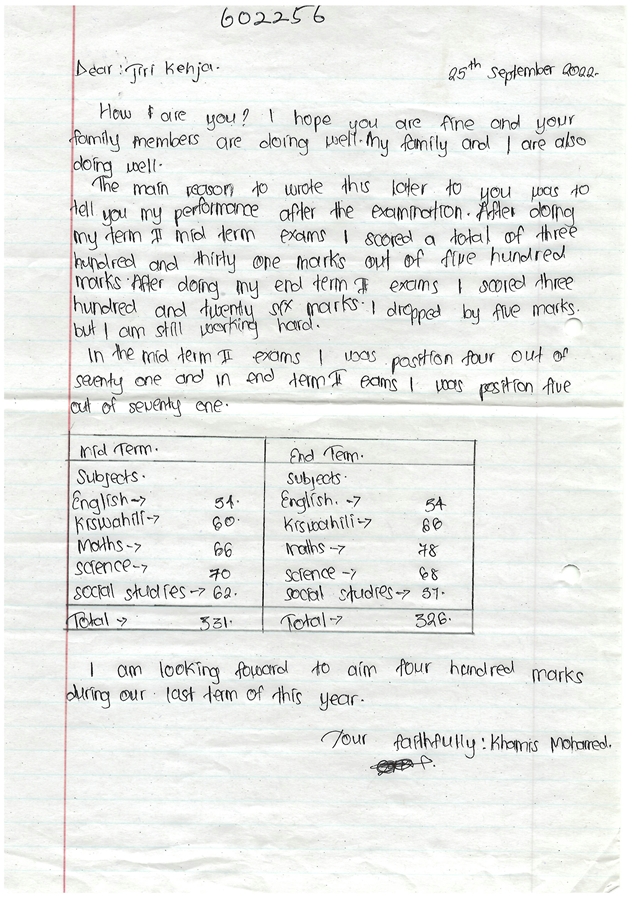 602256
Dear: Jiri Kenja.
25th September 2022.
How are you? I hope you are fine and your
family members are doing well. My family and I are also
doing well.
The main reason to wrote this later to you was to
tell you my performance after the examination. After doing
my term II mid term exams I scored a total of three
hundred and thirty one marks out of five hundred
marks. After doing my end term II exams I scored three
hundred and twenty six marks. I dropped by five marks.
but I am still working hard.
In the mid term II exams I was position four out of
seventy one and in end term II exams I was position five
out of seventy one.
Mid Term. End Term.
Subjects. Subjects.
English→ 54. English. → 54
Kiswahili→ 60. Kiswahili→ 60
Maths→ 66 maths→ 78
science→ 70 science→ 68
social studies→ 62. social studies→ 57.
Total→ 331. Total→ 326.
I am looking foward to aim four hundred marks
during our last term of this year.
Your faithfully: Khamis Mohamed.